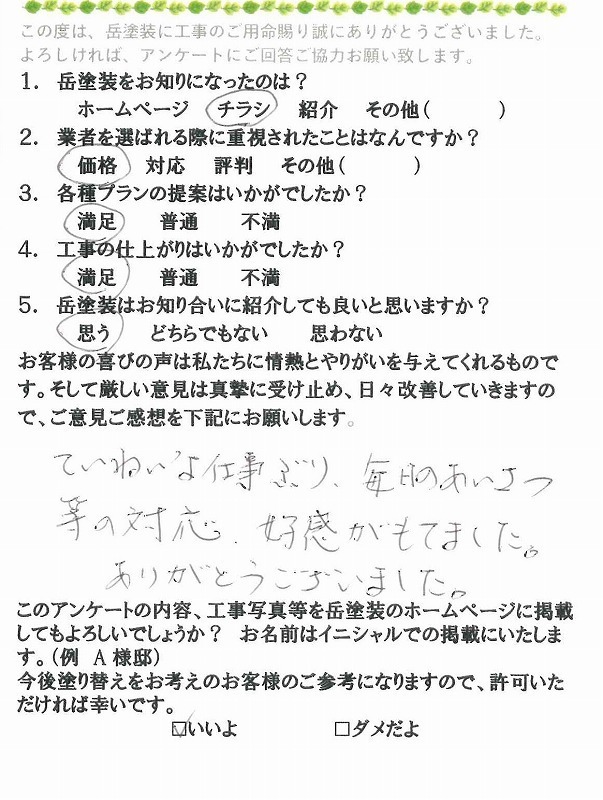 この度は、岳塗装に工事のご用命賜り誠にありがとうございました。
よろしければ、アンケートにご回答ご協力お願い致します。
1. 岳塗装をお知りになったのは？
ホームページ チラシ 紹介 その他( )
2. 業者を選ばれる際に重視されたことはなんですか？
価格 対応 評判 その他( )
3. 各種プランの提案はいかがでしたか？
満足 普通 不満
4. 工事の仕上がりはいかがでしたか？
満足 普通 不満
5. 岳塗装はお知り合いに紹介しても良いと思いますか？
思う どちらでもない 思わない
お客様の喜びの声は私たちに情熱とやりがいを与えてくれるもので
す。そして厳しい意見は真摯に受け止め、日々改善していきますの
で、ご意見ご感想を下記にお願いします。
ていねいな仕事ぶり、毎日のあいさつ
等の対応、好感がもてました。
ありがとうございました。
このアンケートの内容、工事写真等を岳塗装のホームページに掲載
してもよろしいでしょうか？ お名前はイニシャルでの掲載にいたしま
す。(例 A 様邸)
今後塗り替えをお考えのお客様のご参考になりますので、許可いた
だければ幸いです。
☑いいよ □ダメだよ